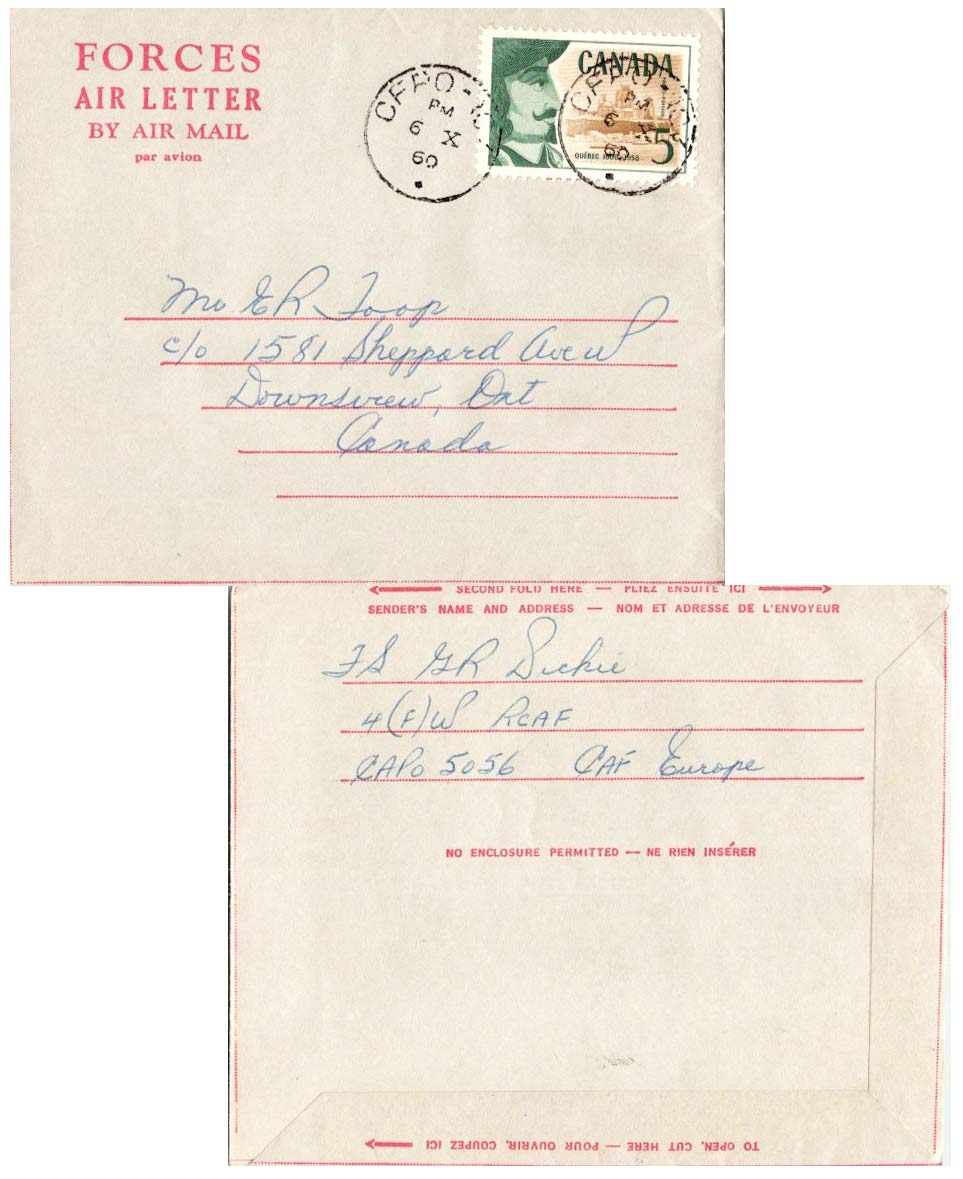 FORCES
AIR LETTER
BY AIR MAIL
par avion
CFPO
PM
6 X
60
CANADA
5
QUÉBEC 1608-1958
CFPO
PM
6 X
60
Mr ER Toop
c/o 1581 Sheppard Ave W
Downsview, Ont
Canada
SECOND FOLD HERE — PLIEZ ENSUITE ICI
SENDER'S NAME AND ADDRESS — NOM ET ADRESSE DE L'ENVOYEUR
FS GR Dickie
4(F)W RCAF
CAPO 5056 CAF Europe
NO ENCLOSURE PERMITTED — NE RIEN INSÉRER
TO OPEN, CUT HERE — POUR OUVRIR, COUPEZ ICI